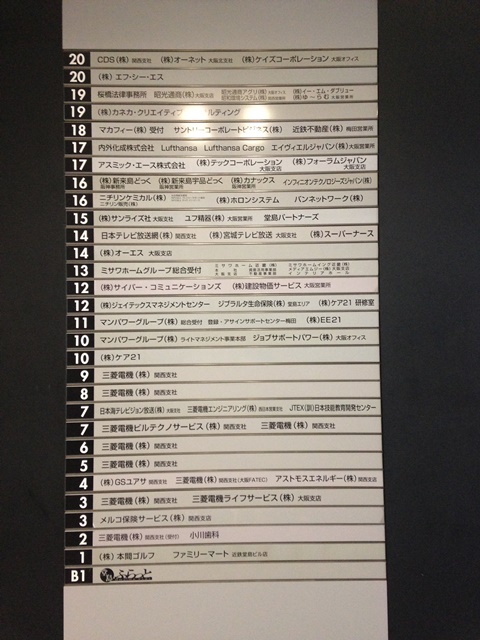 20 CDS(株) 関西支社 (株)オーネット 大阪北支社 (株)ケイズコーポレーション 大阪オフィス
20 (株) エフ・シー・エス
19 桜橋法律事務所 昭光通商(株) 大阪支店 昭光通商アグリ(株) (株)イー・エム・ダブリュー
(株)ゆ〜らむ
19 (株)カネカ・クリエイティブ
18 マカフィー(株) 受付 サントリーコーポレートビジネス(株) 近鉄不動産(株) 梅田営業所
17 内外化成株式会社 Lufthansa Lufthansa Cargo エイヴィエルジャパン(株) 大阪営業所
17 アスミック・エース株式会社 (株)テックコーポレーション 大阪支店 (株)フォーラムジャパン 大阪支店
16 (株)新来島どっく 阪神事務所 (株)新来島宇品どっく 阪神営業所 (株)カナックス 大阪営業所 インフィニオンテクノロジーズジャパン(株)
16 ニチリンケミカル(株) (株)ホロンシステム バンネットワーク(株)
ニチリン販売(株)
15 (株)サンライズ社 大阪支社 ユフ精器(株) 大阪営業所 堂島パートナーズ
14 日本テレビ放送網(株) 関西支社 (株)宮城テレビ放送 大阪支社 (株)スーパーナース
14 (株)オーエス 大阪支店
13 ミサワホームグループ総合受付 ミサワホーム近畿(株) ミサワホームイング近畿(株)
12 (株)サイバー・コミュニケーションズ (株)建設物価サービス 大阪営業所
12 (株)ジェイテックスマネジメントセンター ジブラルタ生命保険(株) 堂島エリア (株)ケア21 研修室
11 マンパワーグループ(株) 総合受付 登録・アサインサポートセンター梅田 (株)EE21
10 マンパワーグループ(株) ライトマネジメント事業本部 ジョブサポートパワー(株) 大阪オフィス
10 (株)ケア21
9 三菱電機(株) 関西支社
8 三菱電機(株) 関西支社
7 日本海テレビジョン放送(株) 大阪支社 三菱電機エンジニアリング(株) 西日本営業支社 JTEX(訓)日本技能教育開発センター
7 三菱電機ビルテクノサービス(株) 関西支社 三菱電機(株) 関西支社
6 三菱電機(株) 関西支社
5 三菱電機(株) 関西支社
4 (株)GSユアサ 関西支社 三菱電機(株) 関西支社(大阪FATEC) アストモスエネルギー(株) 関西支店
3 三菱電機(株) 関西支社 三菱電機ライフサービス(株) 大阪支店
3 メルコ保険サービス(株) 関西支店
2 三菱電機(株) 関西支社(受付) 小川歯科
1 (株)本間ゴルフ ファミリーマート 近鉄堂島ビル店
B1 ふらっと